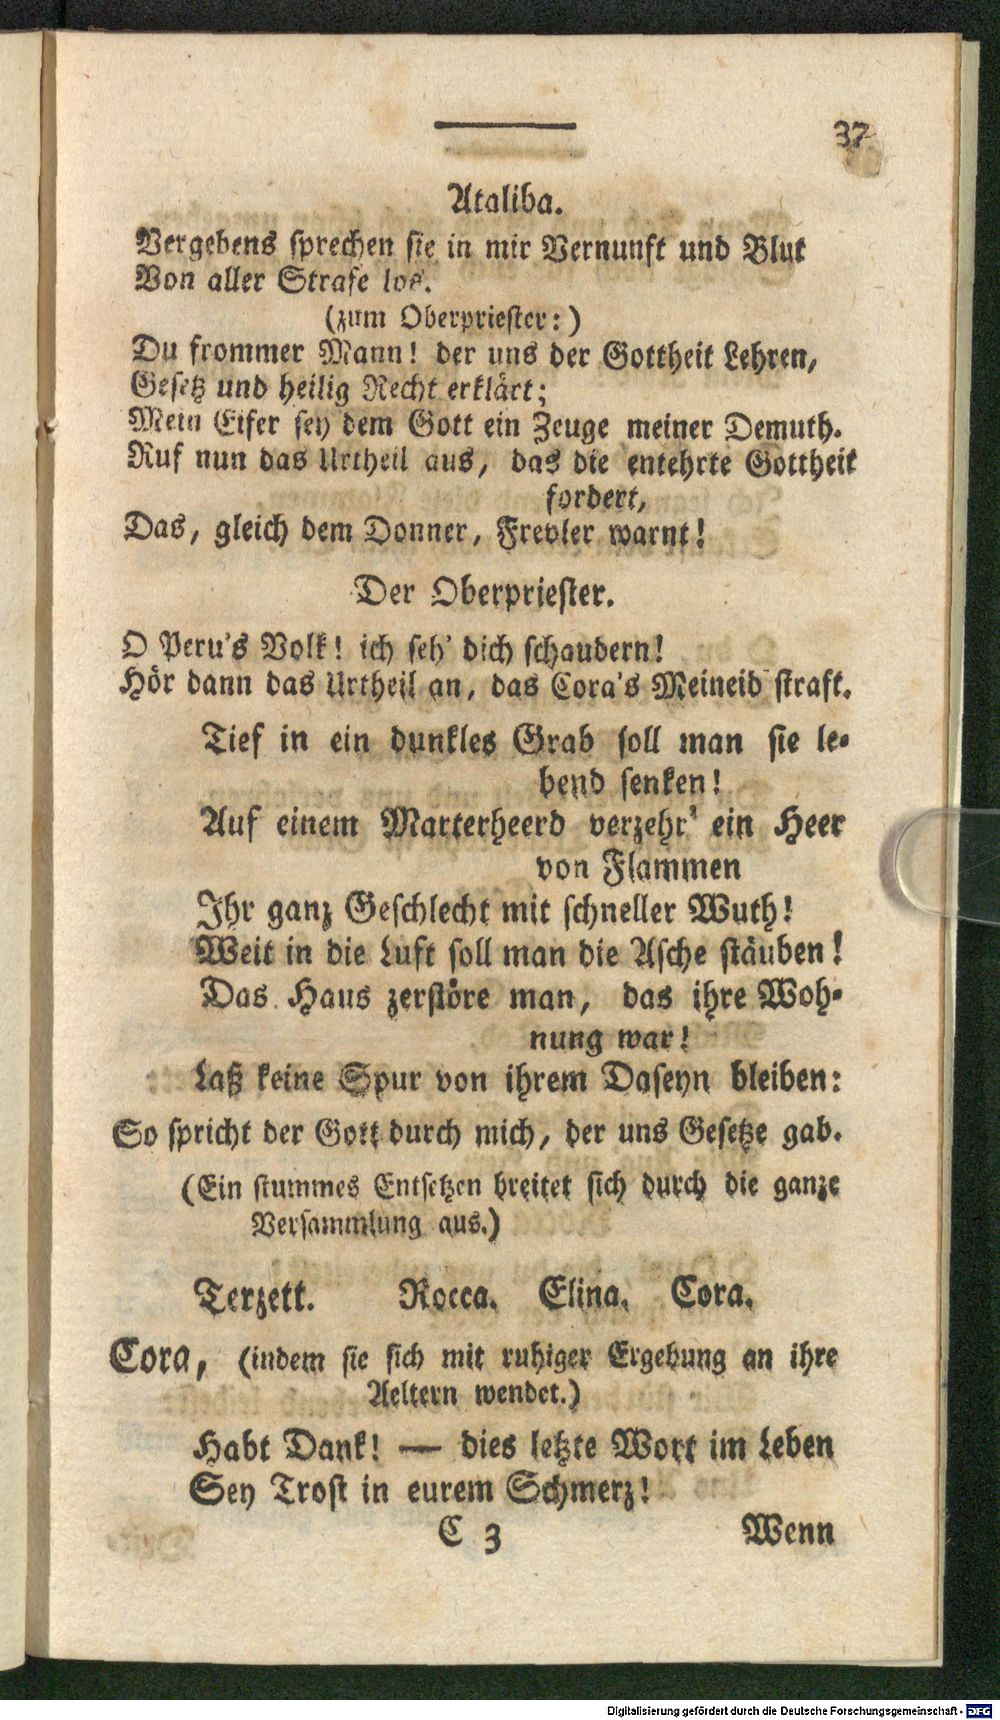 37
Ataliba.
Vergebens sprechen sie in mir Vernunft und Blut
Von aller Strafe los.
(zum Oberpriester:)
Du frommer Mann! der uns der Gottheit Lehren,
Gesetz und heilig Recht erklärt;
Mein Eifer sey dem Gott ein Zeuge meiner Demuth.
Ruf nun das Urtheil aus, das die entehrte Gottheit
fordert,
Das, gleich dem Donner, Frevler warnt!
Der Oberpriester.
O Peru's Volk! ich seh' dich schaudern!
Hör dann das Urtheil an, das Cora's Meineid straft.
Tief in ein dunkles Grab soll man sie le-
bend senken!
Auf einem Marterheerd verzehr' ein Heer
von Flammen
Ihr ganz Geschlecht mit schneller Wuth!
Weit in die Luft soll man die Asche stäuben!
Das Haus zerstöre man, das ihre Woh-
nung war!
Laß keine Spur von ihrem Daseyn bleiben:
So spricht der Gott durch mich, der uns Gesetze gab.
(Ein stummes Entsetzen breitet sich durch die ganze
Versammlung aus.)
Terzett. Rocca. Elina. Cora.
Cora, (indem sie sich mit ruhiger Ergebung an ihre
Aeltern wendet.)
Habt Dank! — dies letzte Wort im Leben
Sey Trost in eurem Schmerz!
C 3 Wenn
Digitalisierung gefördert durch die Deutsche Forschungsgemeinschaft - DFG